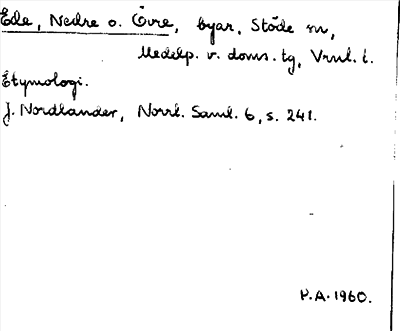 Ede, Nedre o. Övre, byar, Stöde sn,
Medelp. v. doms. tg, Vrnl. l.
Etymologi.
J. Nordlander, Norrl. Saml. 6, s. 241.
P.A. 1960.